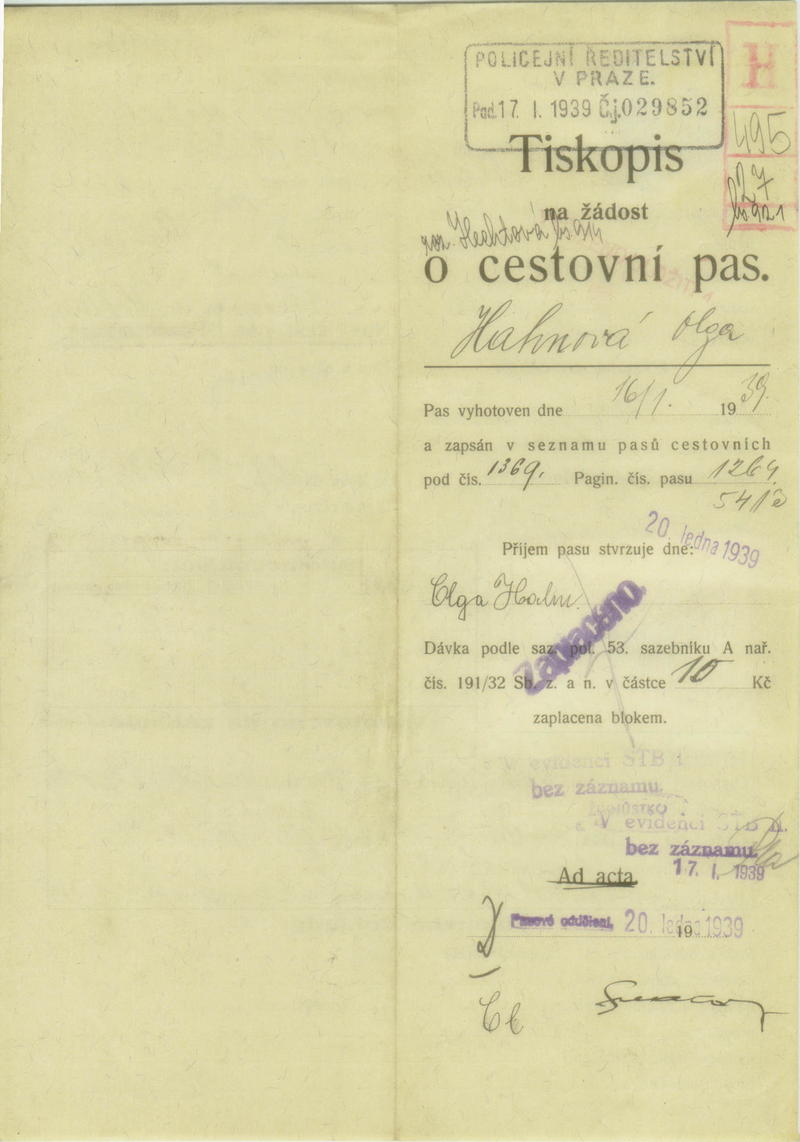 POLICEJNÍ ŘEDITELSTVÍ
V PRAZE.
Pod. 17. I. 1939 Čj. 029852
H
495
27
Tiskopis
na žádost
roz. Hechtová
o cestovní pas.
Hahnová Olga
Pas vyhotoven dne 16/1. 1939.
a zapsán v seznamu pasů cestovních
pod čís. 1369. Pagin. čís. pasu 1264.
541
20. ledna 1939
Příjem pasu stvrzuje dne:
Olga Hahn.
Zaplaceno.
Dávka podle saz. pol. 53. sazebníku A nař.
čís. 191/32 Sb. z. a n. v částce 10 Kč
zaplacena blokem.
V evidenci STB
bez záznamu.
V evidenci STB
bez záznamu.
17. I. 1939
Ad acta
Pasové oddělení. 20. ledna 1939
19